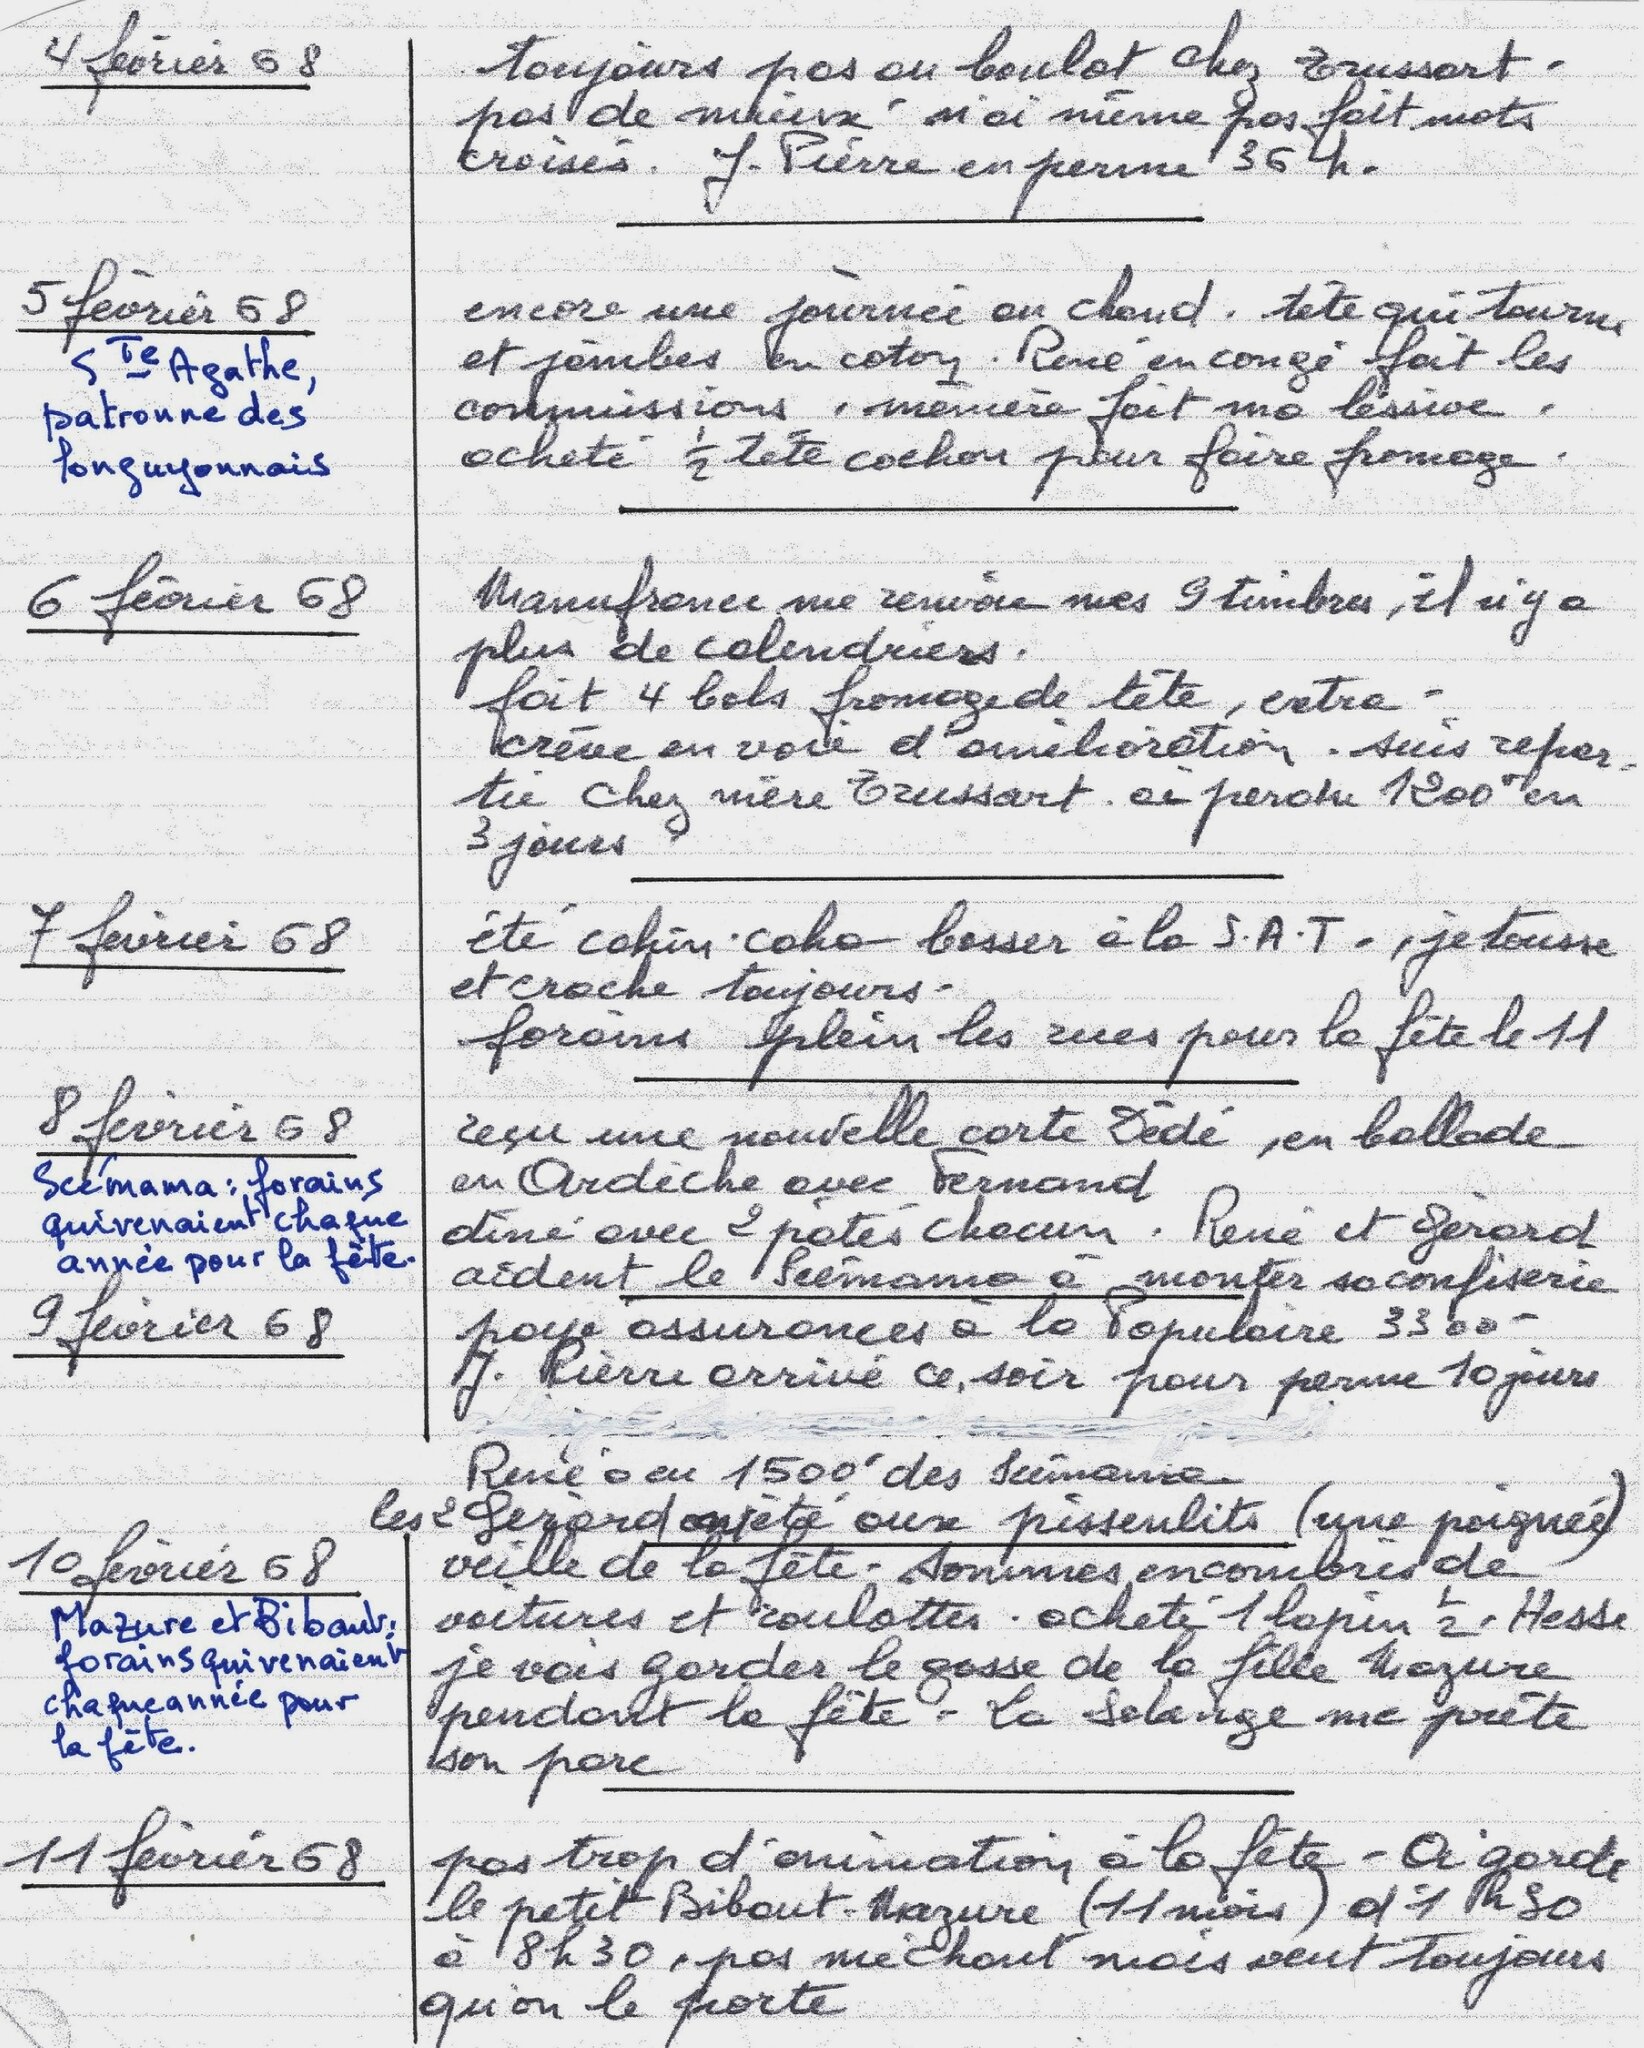 4 février 68
toujours pas au boulot chez Trussart -
pas de mieux n'ai même pas fait mots
croisés. J. Pierre en perme 36 h.
5 février 68
Ste Agathe,
patronne des
longuyonnais
encore une journée au chaud. tête qui tourne
et jambes en coton. René en congé fait les
commissions, mémère fait ma lessive.
acheté 1/2 tête cochon pour faire fromage.
6 février 68
Manufrance me renvoie mes 9 timbres, il n'y a
plus de calendriers.
fait 4 bols fromage de tête, extra -
crève en voie d'amélioration. suis repar-
tie chez mère Trussart. ai perdu 1200 en
3 jours
7 février 68
été cahin-caha bosser à la S.A.T. , je tousse
et crache toujours -
forains plein les rues pour la fête le 11
8 février 68
Scémama : forains
qui venaient chaque
année pour la fête.
reçu une nouvelle carte Dédé, en ballade
en Ardèche avec Fernand
dîné avec 2 pâtés chacun. René et Gérard
aident le Scémama à monter sa confiserie
9 février 68
paye assurances à la Populaire 3300 -
J. Pierre arrivé ce soir pour perme 10 jours
René a eu 1500 des Scémama
les 2 Gérard ont été aux pissenlits (une poignée)
10 février 68
Mazure et Bibaut :
forains qui venaient
chaque année pour
la fête.
veille de la fête - sommes encombrés de
voitures et roulottes. acheté 1 lapin 1/2. Hesse
je vais garder le gosse de la fille Mazure
pendant la fête - La Solange me prête
son parc
11 février 68
pas trop d'animation à la fête - Ai gardé
le petit Bibaut-Mazure (11 mois) d'1 h 30
à 8h30, pas méchant mais veut toujours
qu'on le porte